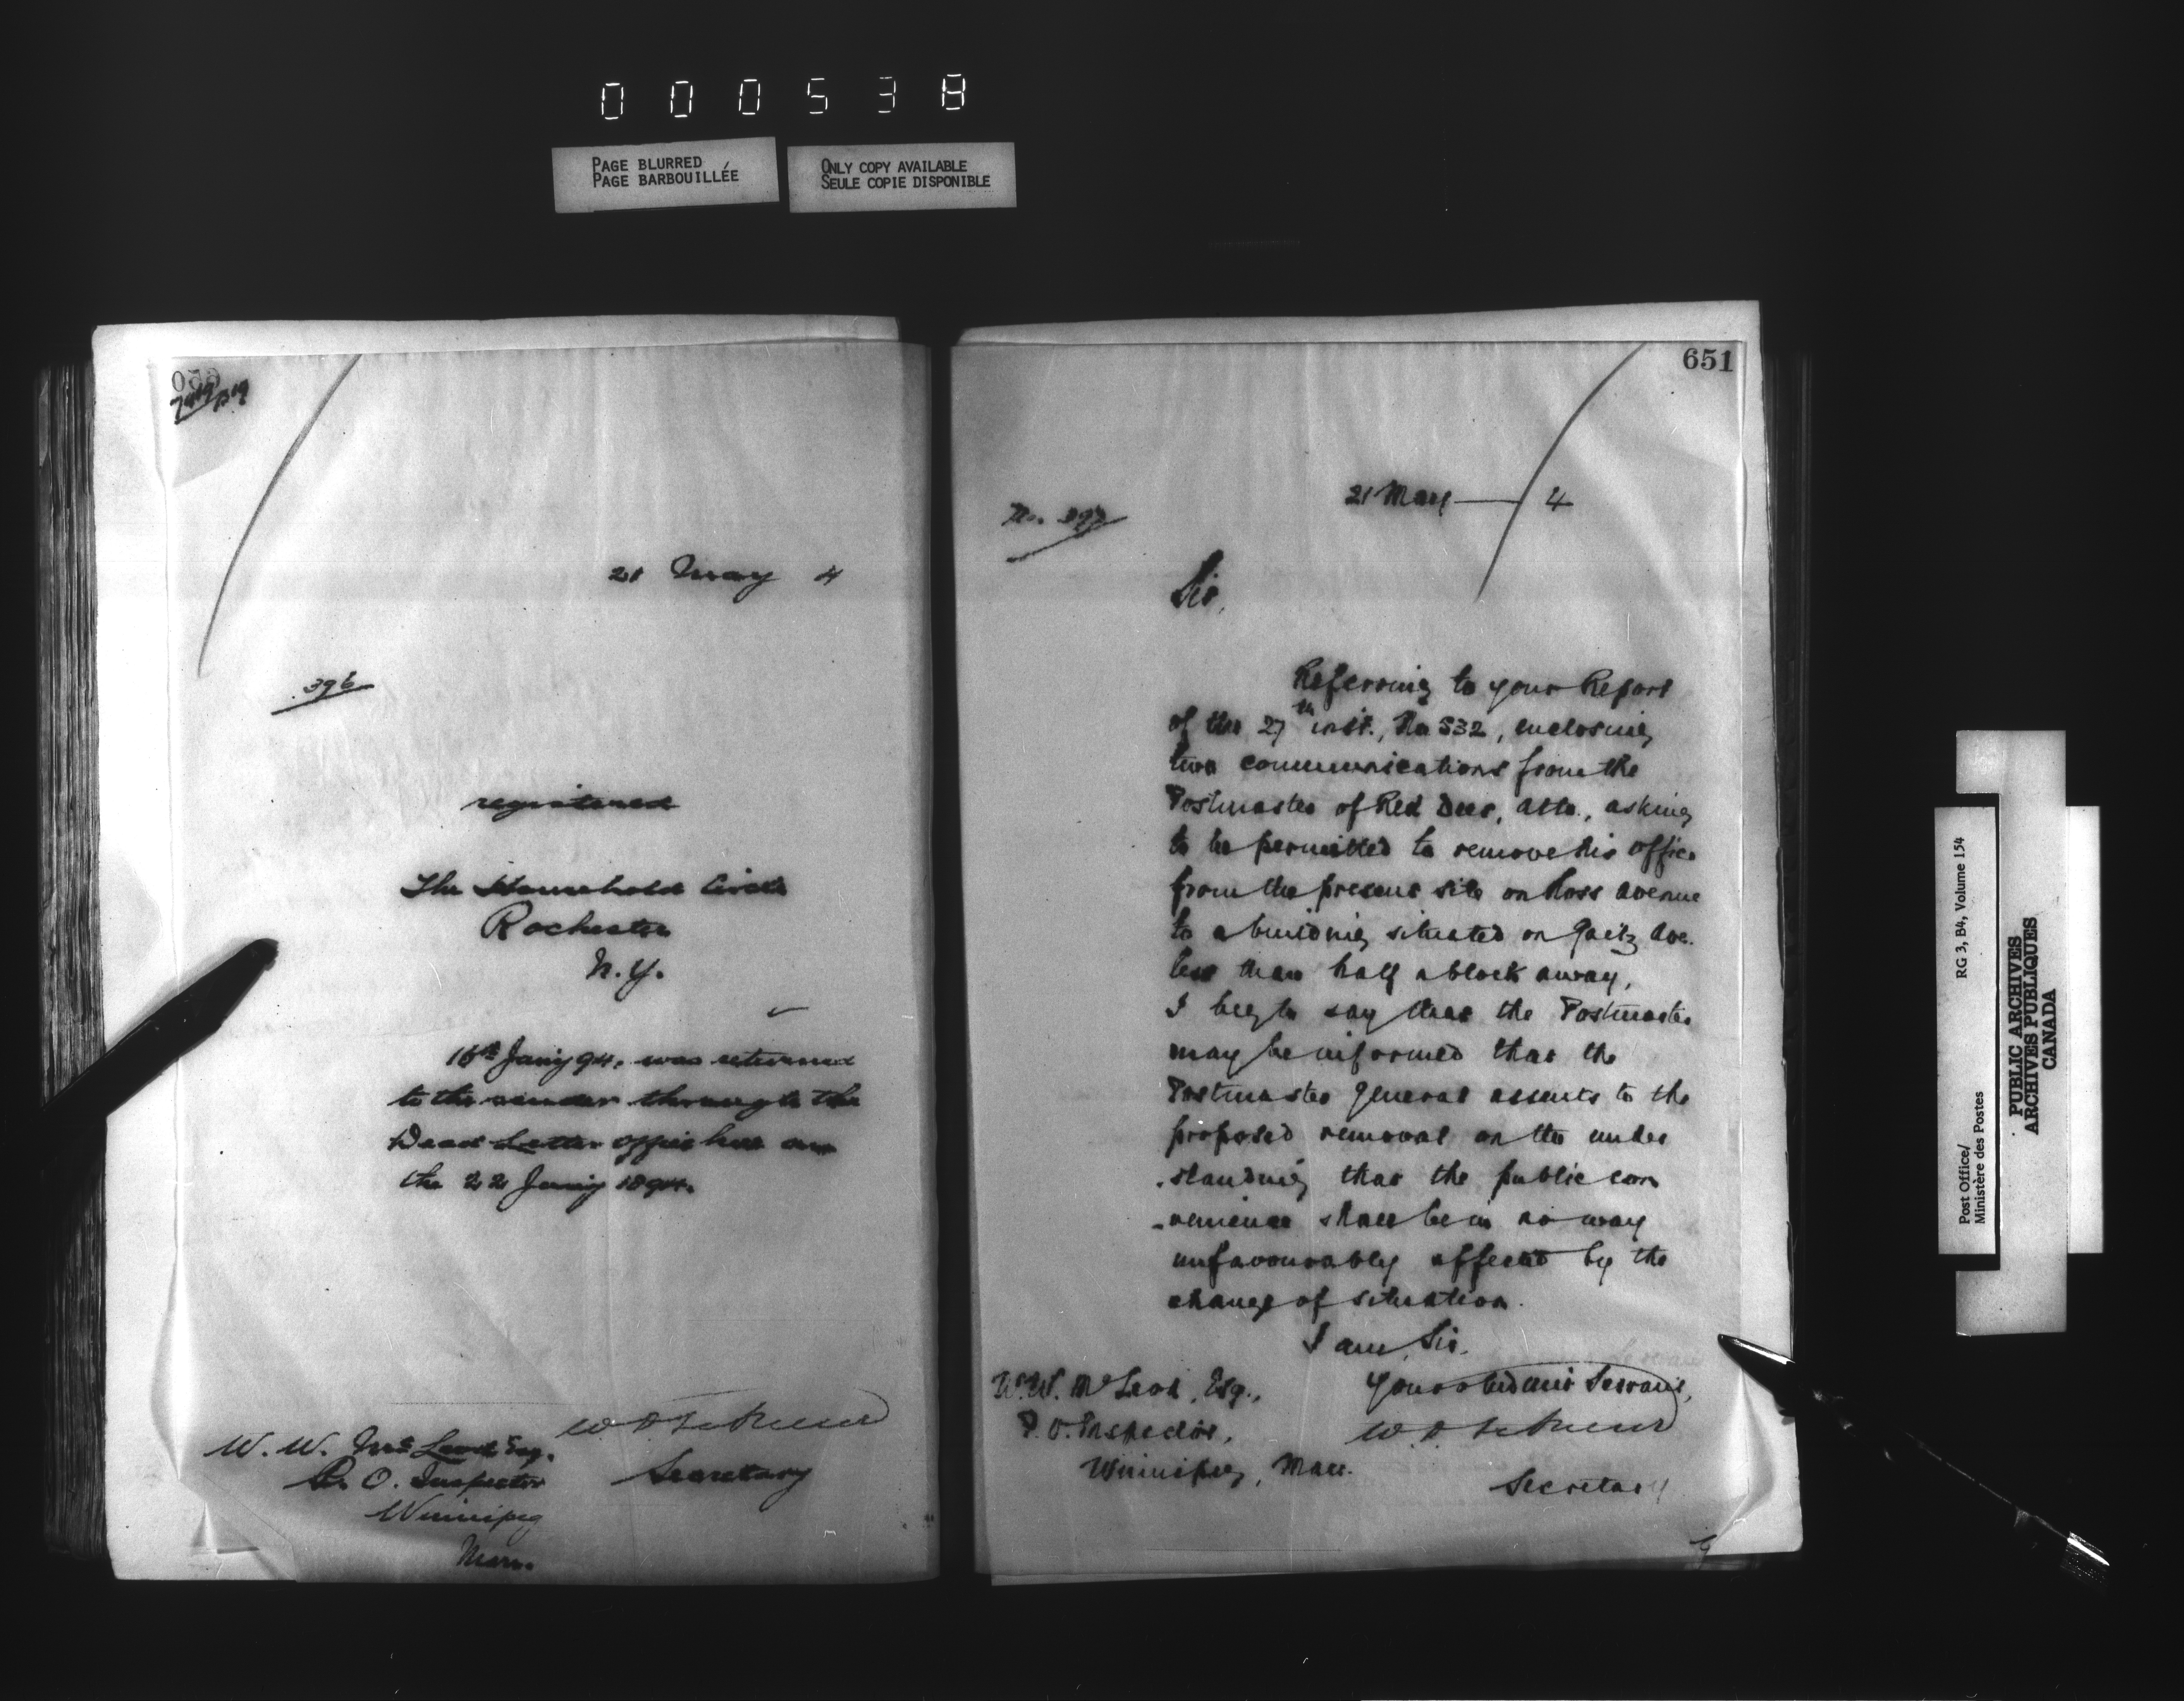 000538
PAGE BLURRED
PAGE BARBOUILLÉE
ONLY COPY AVAILABLE
SEULE COPIE DISPONIBLE
650
21 May 4
396
registered
The Household Circle
Rochester
N.Y.
16th Jany 94, was returned
to the sender through the
Dead Letter office here on
the 22 Jany 1894.
Secretary
W. W. McLeod Esq.
P. O. Inspector
Winnipeg
Man.
651
21 May 4
No. 397
Sir,
Referring to your Report
of the 27th inst., No 532, enclosing
two communications from the
Postmaster of Red Deer, Alta., asking
to be permitted to remove his office
from the present site on Ross Avenue
to a building situated on Gaetz Ave.
less than half a block away,
I beg to say that the Postmaster
may be informed that the
Postmaster General assents to the
proposed removal on the under
-standing that the public con
-venience shall be in no way
unfavourably affected by the
change of situation.
I am, Sir,
Your obedient Servant,
W. W. McLeod, Esq.,
P.O. Inspector,
Winnipeg, Man.
Secretary
Post Office/
Ministère des Postes
RG 3, B4, Volume 154
PUBLIC ARCHIVES
ARCHIVES PUBLIQUES
CANADA